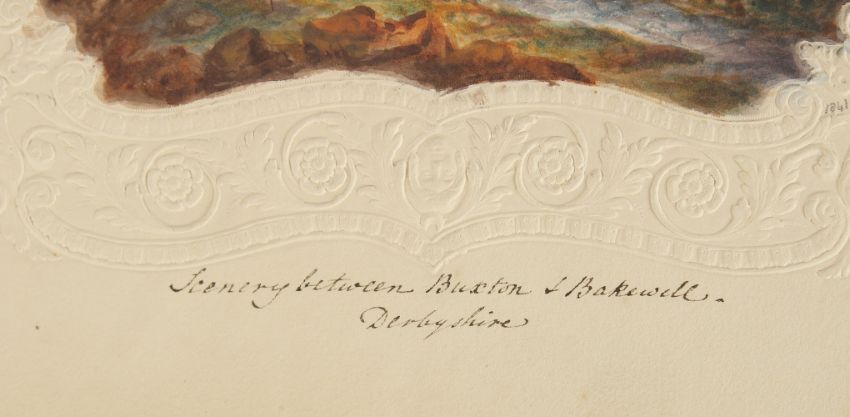 1841
Scenery between Buxton & Bakewell.
Derbyshire